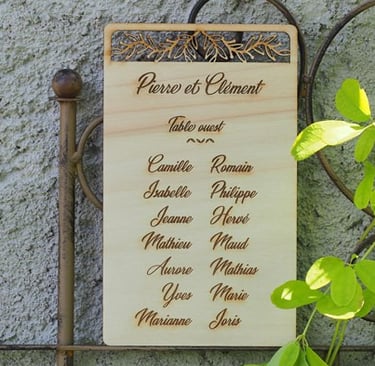 Pierre et Clément
Table ouest
Camille Romain
Isabelle Philippe
Jeanne Hervé
Mathieu Maud
Aurore Mathias
Yves Marie
Marianne Joris